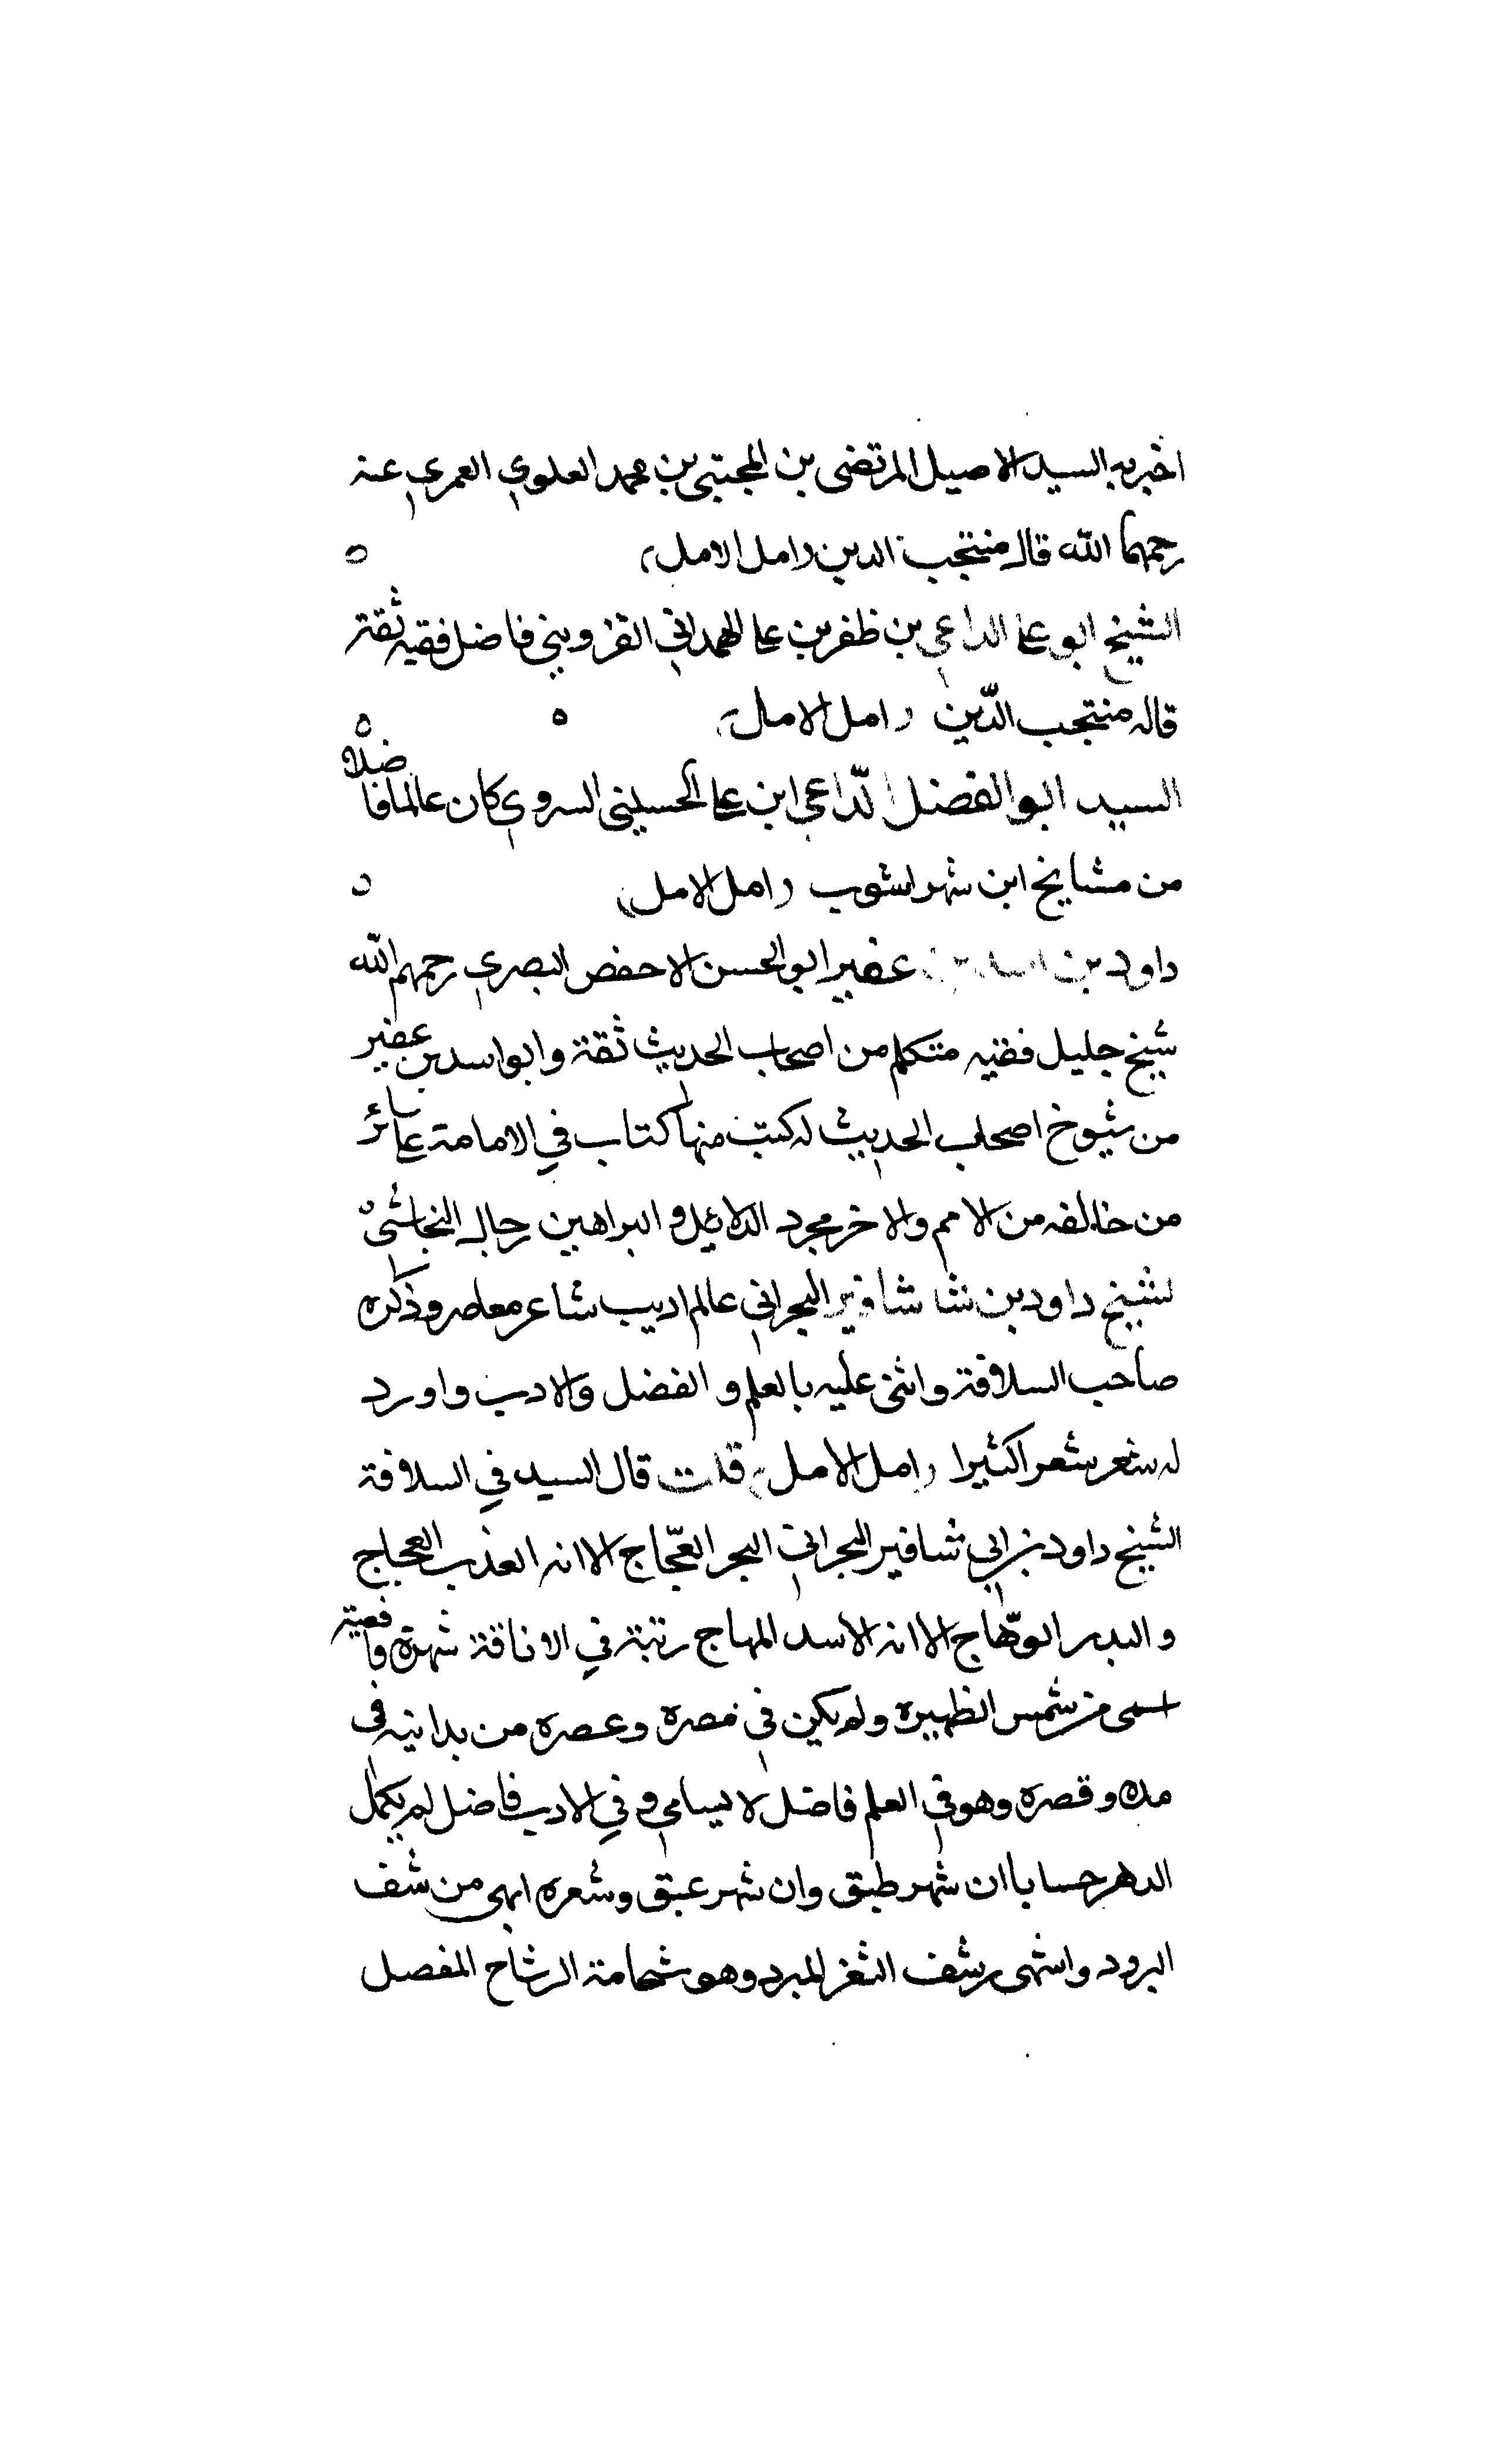 اخبر به السيد الاصيل المرتضى بن المجتبى بن محمد العلوي العمري عنه
رحمهما الله قاله منتجب الدين (امل الامل)
الشيخ ابو علي الداعي بن ظفر بن علي الهمداني القزويني فاضل فقيه ثقة
قاله منتجب الدّين (امل الامال)
السيد ابو الفضل الدّاعي ابن علي الحسيني السروي كان عالما فاضلا
من مشايخ ابن شهراشوب (امل الامل)
داود بن اسد بن عفير ابو الحسن الاحفص البصري رحمهم الله
شيخ جليل فقيه متكلم من اصحاب الحديث ثقة وابو اسد بن عفير
من شيوخ اصحاب الحديث له كتب منها كتاب في الامامة على سائر
من خالفه من الامم والاخر مجرد الدلائل والبراهين رجال النجاشي
لشيخ داود بن شا شافير البحراني عالم اديب شاعر معاصر وذكره
صاحب السلافة واثنى عليه بالعلم والفضل والادب واورد
له شعر شعرا كثيرا (امل الامل) قلت قال السيد في السلافة
الشيخ داود بن ابي شافير البحراني البحر العجّاج الا انه العذب العجاج
والبدر الوهّاج الا انه الاسد المهاج رتبة في الاناقة شهيرة
اسمى من شمس الظهيرة ولم يكن في مصره وعصره من يدانيه في
مده وقصره وهو في العلم فاضل لا يسامى وفي الادب فاضل لم يكمل
الدهر حسابا ان شهر طبق وان شهر عبق وشعره ابهى من شف
البرود واشهى رشف الثغر المبرد وهو شمامة الرشاح المفصل